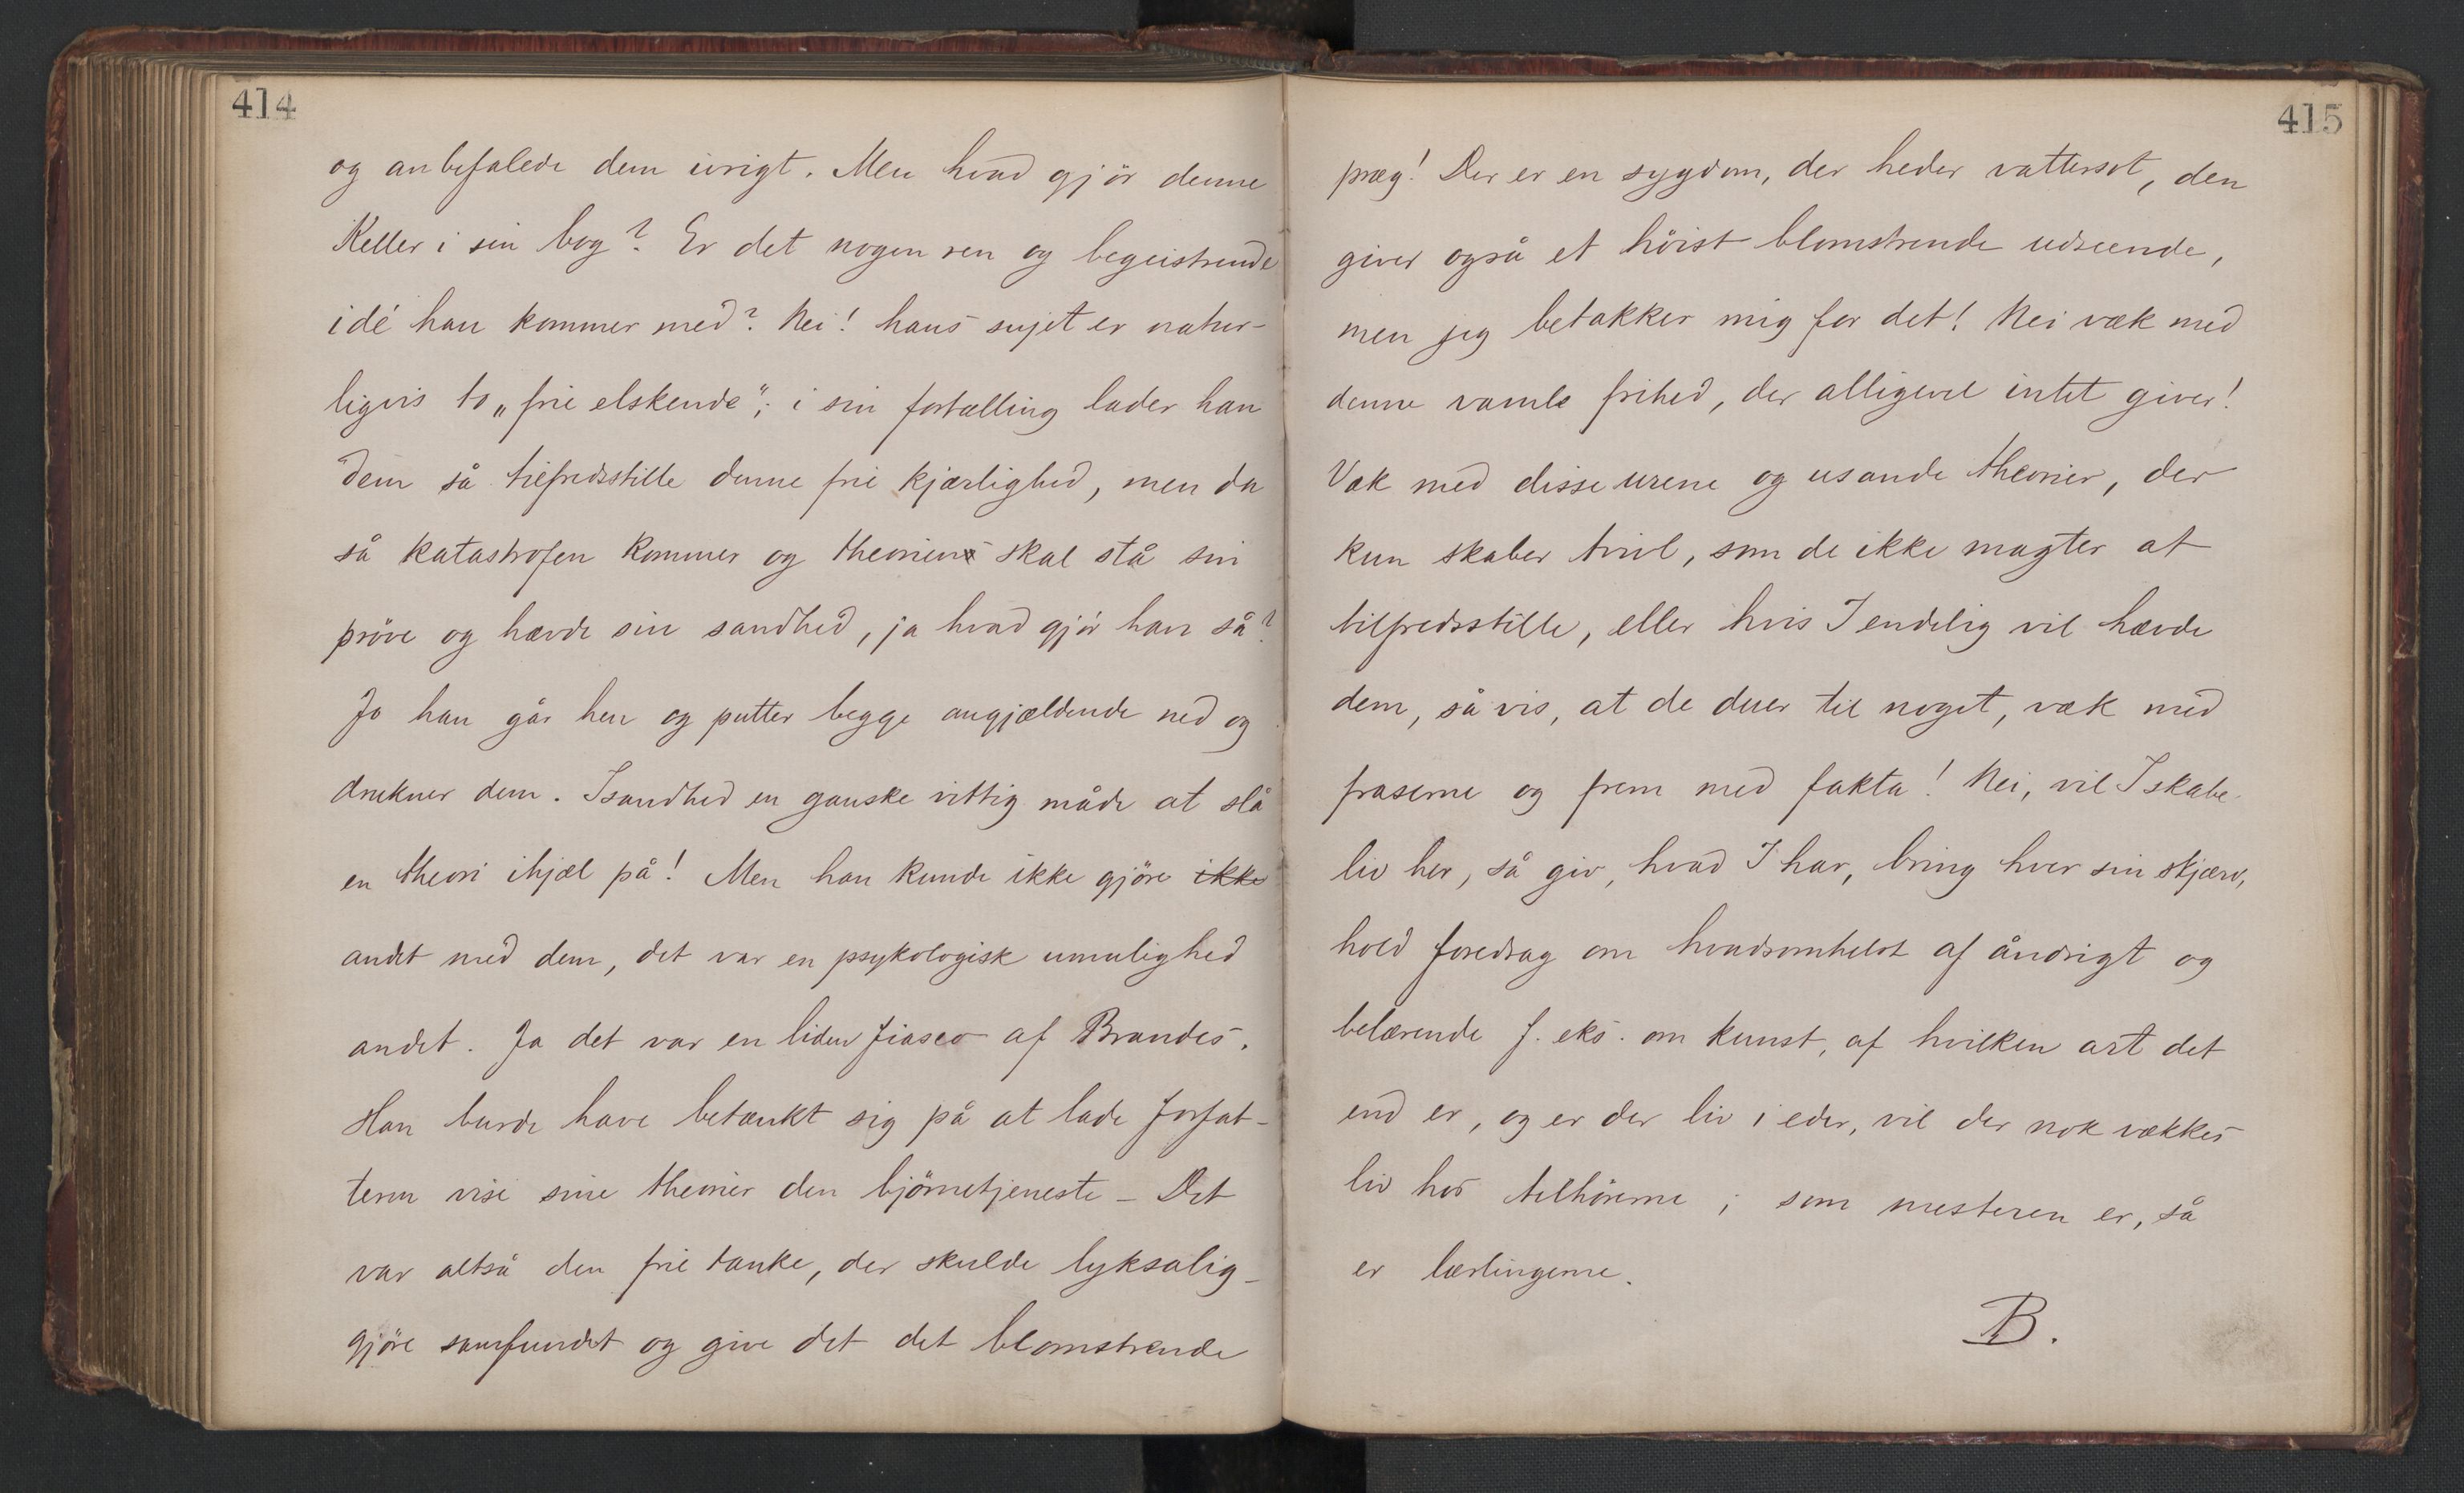 414
og anbefalede dem ivrigt. Men hvad gjör denne
Keller i sin bog? Er det nogen ren og begeistrende
idé han kommer med? Nei! hans sujet er natur-
ligvis to „frie elskende“; i sin fortælling lader han
dem så tilfredsstille denne frie kjærlighed, men da
så katastrofen kommer og theorien skal stå sin
pröve og hævde sin sandhed, ja hvad gjör han så?
Jo han går hen og putter begge angjældende ned og
drukner dem. Isandhed en ganske vittig måde at slå
en theori ihjæl på! Men han kunde ikke gjöre ikke
andet med dem, det var en psykologisk umulighed
andet. Ja det var en liden fiasco af Brandes.
Han burde have betænkt sig på at lade forfat-
teren vise sine theorier den björnetjeneste – Det
var altså den frie tanke, der skulde lyksalig-
gjöre samfundet og give det det blomstrende
415
præg! Der er en sygdom, der heder vattersot, den
giver også et höist blomstrende udseende,
men jeg betakker mig for det! Nei væk med
denne vamle frihed, der alligevel intet giver!
Væk med disse urene og usande theorier, der
kun skaber tvivl, som de ikke magter at
tilfredsstille, eller hvis I endelig vil hævde
dem, så vis, at de duer til noget, væk med
fraserne og frem med fakta! Nei, vil I skabe
liv her, så giv, hvad I har, bring hver sin skjærv,
hold foredrag om hvadsomhelst af åndrigt og
belærende f. eks. om kunst, af hvilken art det
end er, og er der liv i eder, vil der nok vækkes
liv hos tilhörerne; som mesteren er, så
er lærlingerne.
B.